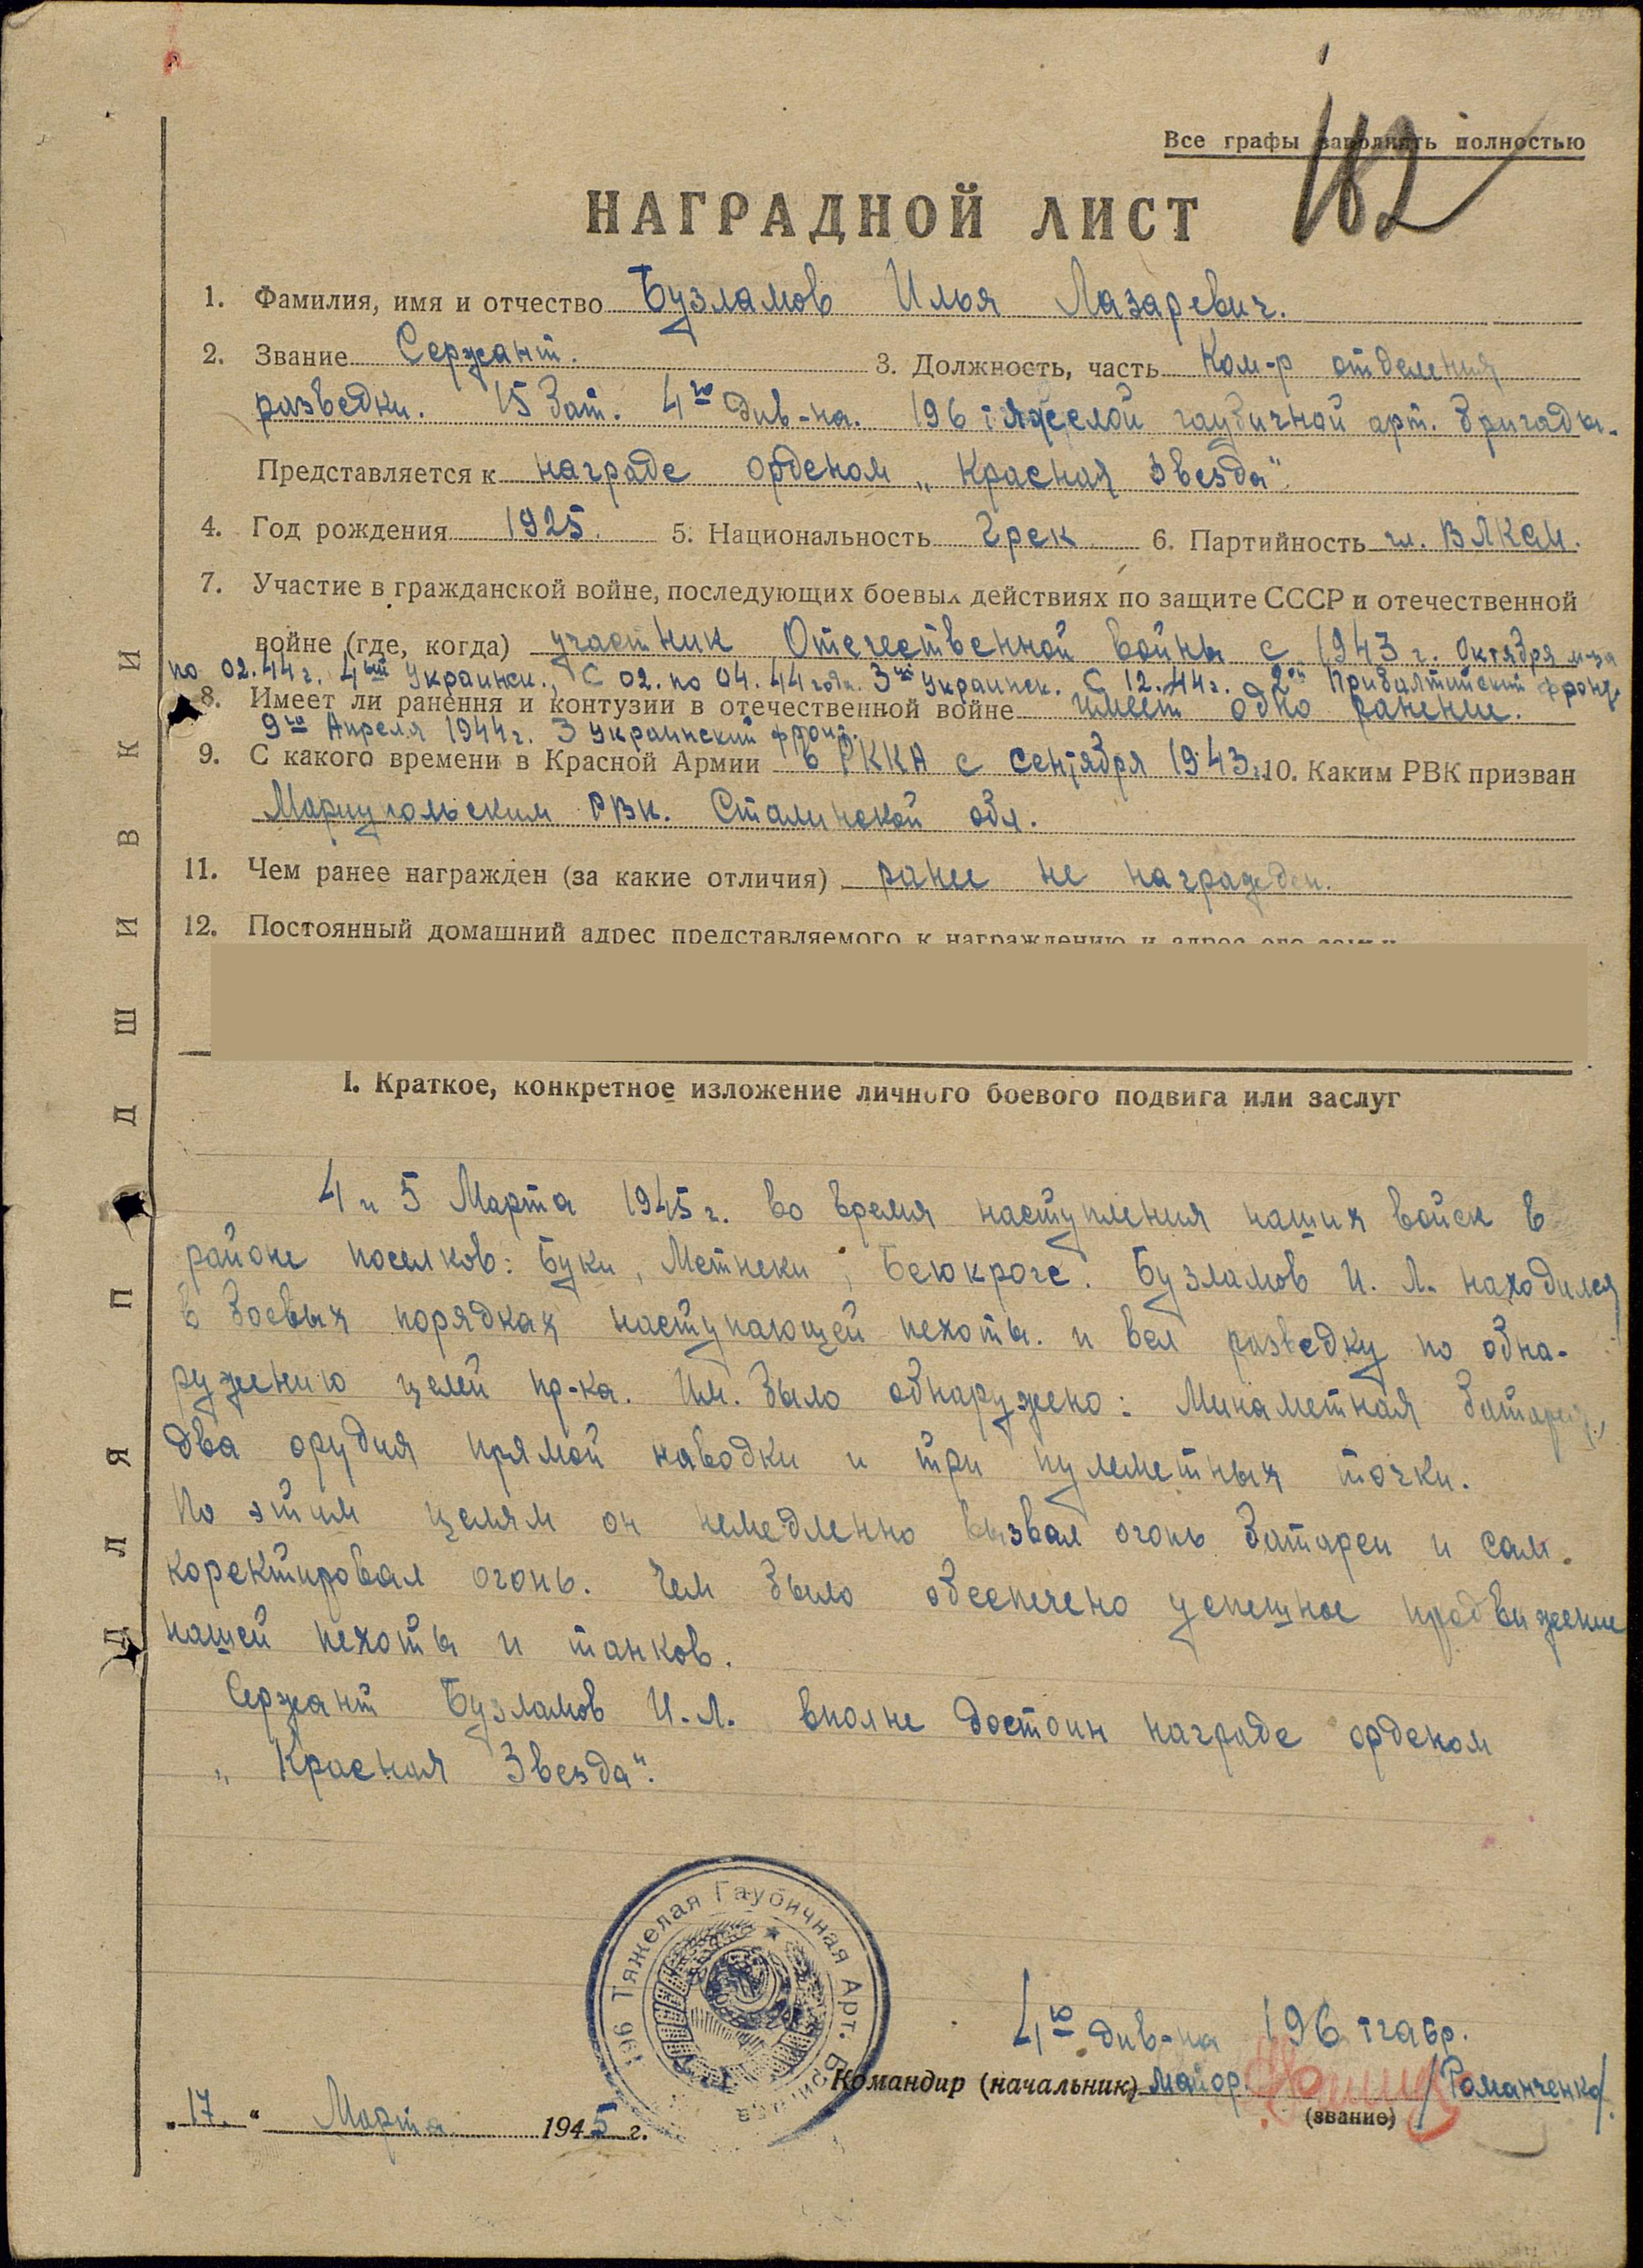 182
Все графы заполнять полностью
НАГРАДНОЙ ЛИСТ
1. Фамилия, имя и отчество Бузламов Илья Лазаревич.
2. Звание Сержант. 3. Должность, часть Ком-р отделения
разведки. 15 бат. 4го див-на. 196 тяжелой гаубичной арт. бригады.
Представляется к награде орденом „Красная Звезда“.
4. Год рождения 1925. 5. Национальность Грек 6. Партийность чл. ВЛКСМ.
7. Участие в гражданской войне, последующих боевых действиях по защите СССР и отечественной
войне (где, когда) участник Отечественной войны с 1943 г. Октября м-ца
по 02.44г. 4ый Украинск., С 02. по 04.44 года. 3ий Украинск. С 12.44г. 2ой Прибалтийский фронд.
8. Имеет ли ранення и контузии в отечественной войне имеет одно ранение.
9го Апреля 1944г. 3 Украинский фронт.
9. С какого времени в Красной Армии в РККА с сентября 1943 г. 10. Каким РВК призван
Мариупольским РВК. Сталинской обл.
11. Чем ранее награжден (за какие отличия) ранее не награжден.
12. Постоянный домашний адрес представляемого к награждению и адрес его семьи
I. Краткое, конкретное изложение личного боевого подвига или заслуг
4 и 5 Марта 1945 г. во время наступления наших войск в
районе поселков: Буки, Метнеки, Беюкроге. Бузламов И. Л. находился
в боевых порядках наступающей пехоты. и вел разведку по обна-
ружению целей пр-ка. Им. было обнаружено: Минаметная батарея,
два орудия прямой наводки и три пулеметных точки.
По этим целям он немедленно вызвал огонь батареи и сам.
коректировал огонь. Чем было обеспечено успешное продвижение
нашей пехоты и танков.
Сержант Бузламов И.Л. вполне достоин награде орденом
„Красная Звезда“.
196 Тяжелая Гаубичная Арт. Бригада
4го див-на 196 тгабр.
Командир (начальник) майор /Романченко/.
(звание)
„17.“ Марта 1945 г.
ДЛЯ ПОДШИВКИ